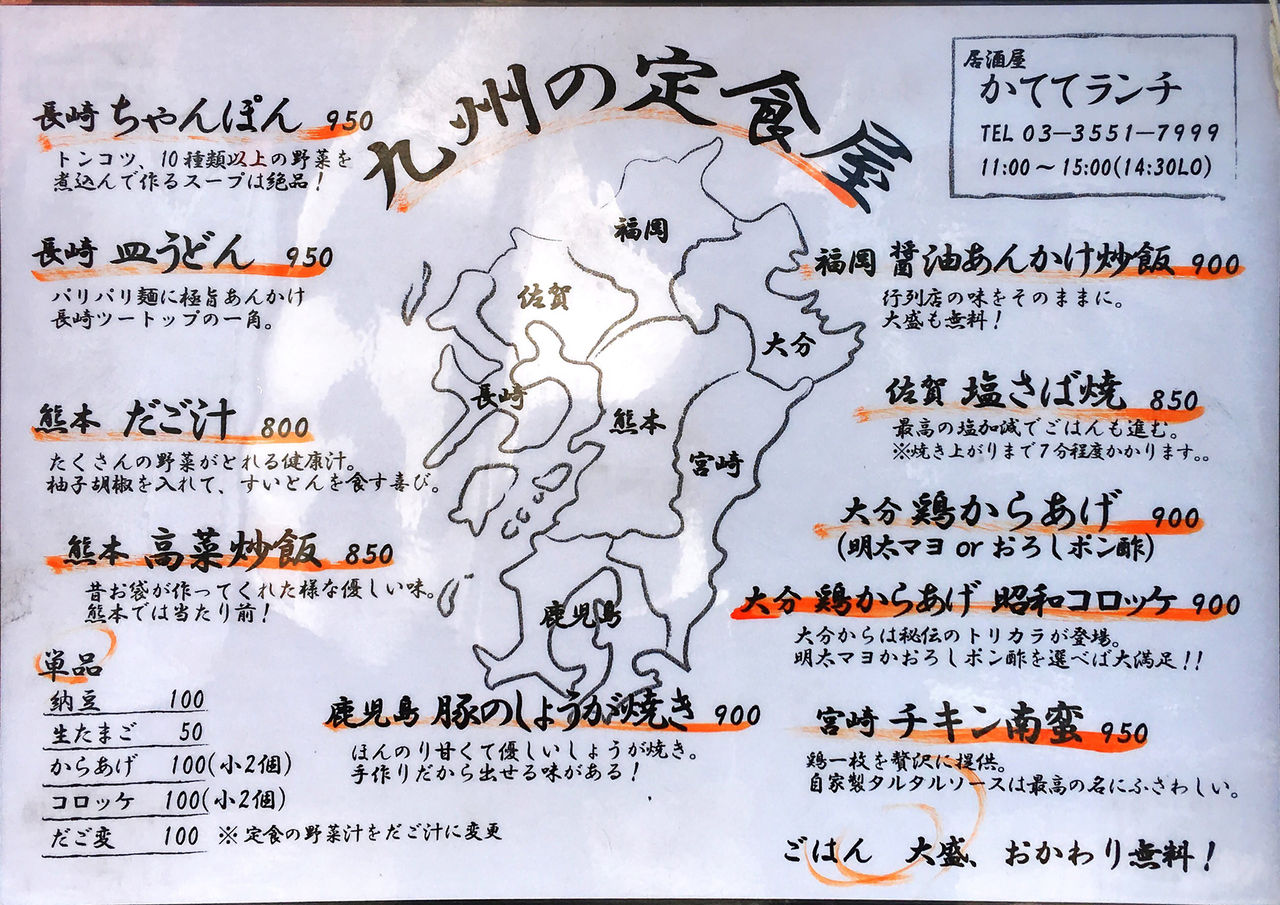 九州の定食屋
居酒屋
かててランチ
TEL 03-3551-7999
11:00～15:00(14:30LO)
長崎 ちゃんぽん 950
トンコツ、10種類以上の野菜を
煮込んで作るスープは絶品！
長崎 皿うどん 950
パリパリ麺に極旨あんかけ
長崎ツートップの一角。
熊本 だご汁 800
たくさんの野菜がとれる健康汁。
柚子胡椒を入れて、すいとんを食す喜び。
熊本 高菜炒飯 850
昔お袋が作ってくれた様な優しい味。
熊本では当たり前！
単品
納豆 100
生たまご 50
からあげ 100(小2個)
コロッケ 100(小2個)
だご変 100 ※定食の野菜汁をだご汁に変更
福岡
佐賀
大分
長崎
熊本
宮崎
鹿児島
鹿児島 豚のしょうが焼き 900
ほんのり甘くて優しいしょうが焼き。
手作りだから出せる味がある！
福岡 醤油あんかけ炒飯 900
行列店の味をそのままに。
大盛も無料！
佐賀 塩さば焼 850
最高の塩加減でごはんも進む。
※焼き上がりまで7分程度かかります。。
大分 鶏からあげ 900
(明太マヨ or おろしポン酢)
大分 鶏からあげ 昭和コロッケ 900
大分からは秘伝のトリカラが登場。
明太マヨかおろしポン酢を選べば大満足！！
宮崎 チキン南蛮 950
鶏一枚を贅沢に提供。
自家製タルタルソースは最高の名にふさわしい。
ごはん 大盛、おかわり無料！